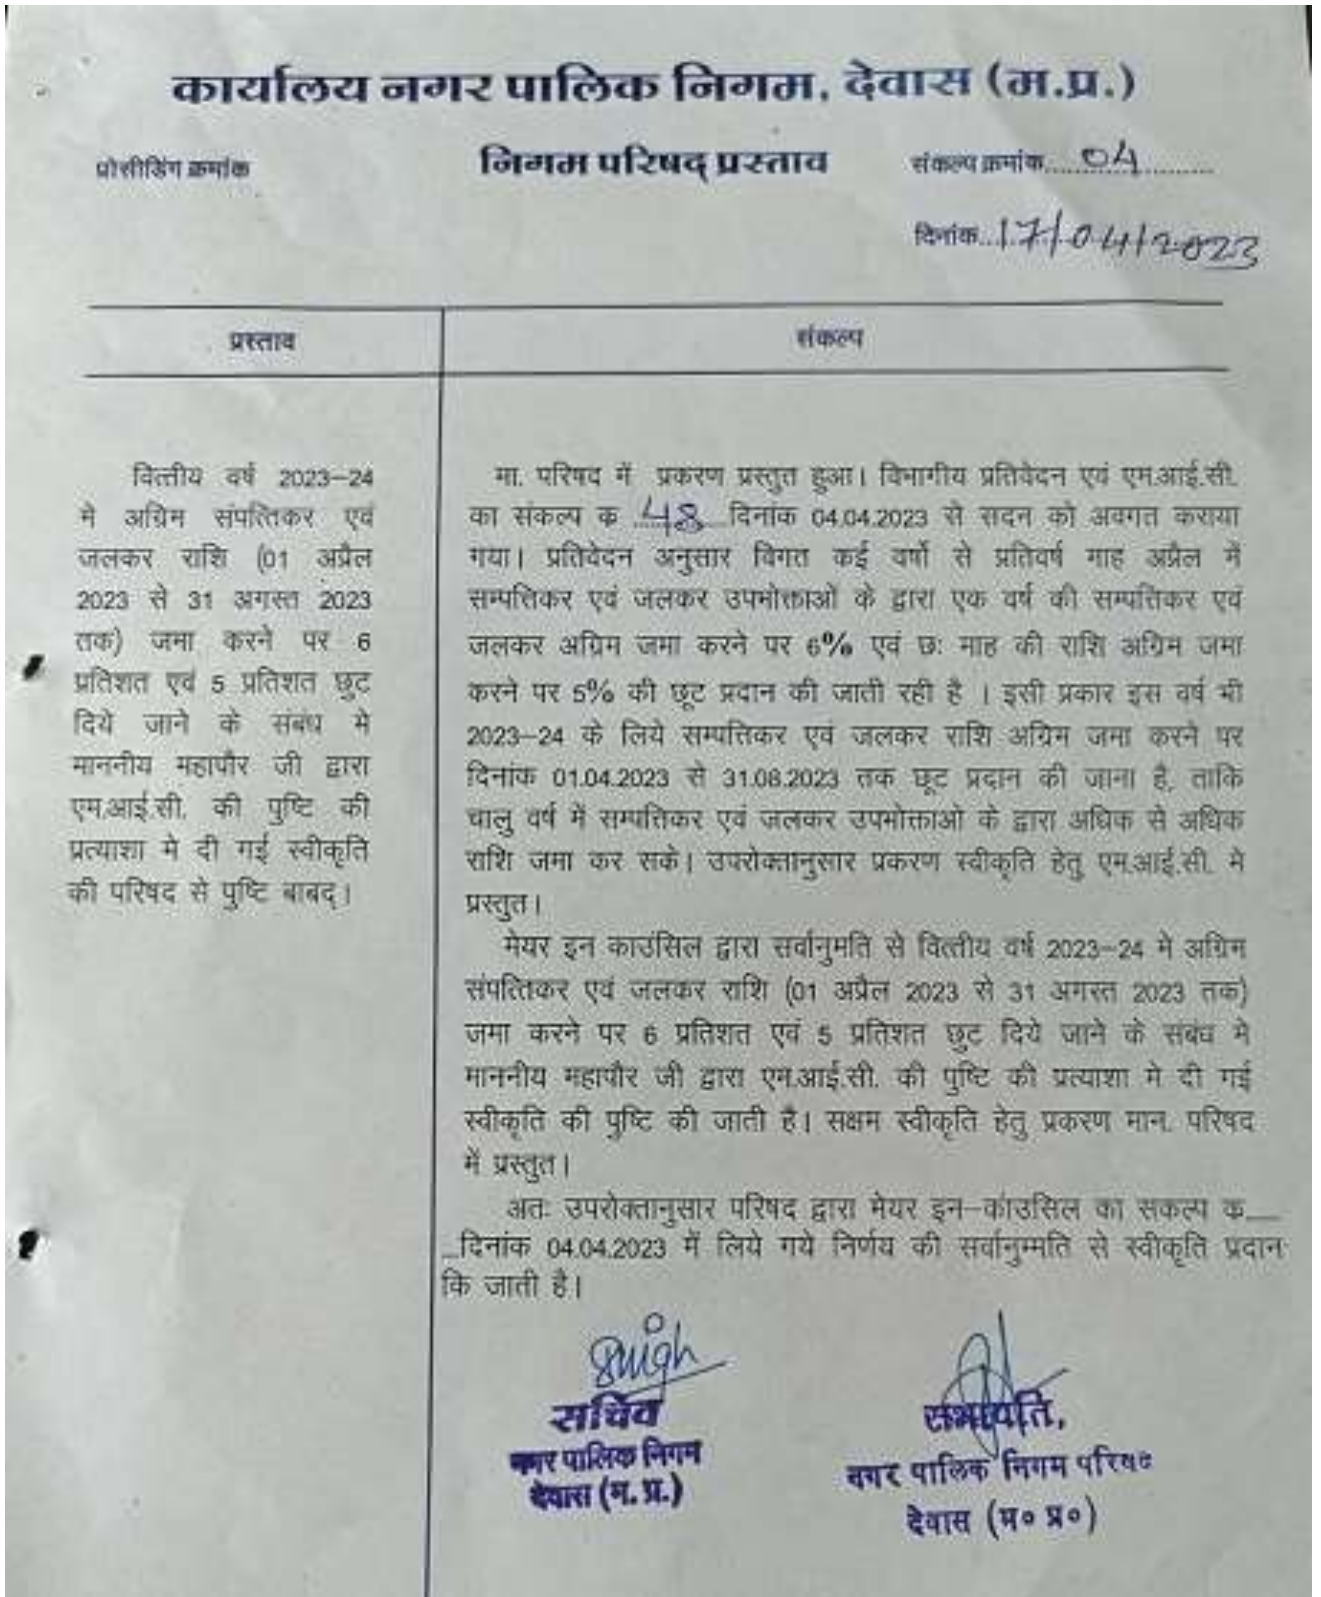 कार्यालय नगर पालिक निगम, देवास (म.प्र.)
प्रोसीडिंग क्रमांक
निगम परिषद् प्रस्ताव
संकल्प क्रमांक....04....
दिनांक...17/04/2023
प्रस्ताव
संकल्प
वित्तीय वर्ष 2023–24
मे अग्रिम संपत्तिकर एवं
जलकर राशि (01 अप्रैल
2023 से 31 अगस्त 2023
तक) जमा करने पर 6
प्रतिशत एवं 5 प्रतिशत छुट
दिये जाने के संबंध मे
माननीय महापौर जी द्वारा
एम.आई.सी. की पुष्टि की
प्रत्याशा मे दी गई स्वीकृति
की परिषद से पुष्टि बाबद्।
मा. परिषद में प्रकरण प्रस्तुत हुआ। विभागीय प्रतिवेदन एवं एम.आई.सी.
का संकल्प क 48 दिनांक 04.04.2023 से सदन को अवगत कराया
गया। प्रतिवेदन अनुसार विगत कई वर्षो से प्रतिवर्ष माह अप्रैल में
सम्पत्तिकर एवं जलकर उपभोक्ताओं के द्वारा एक वर्ष की सम्पत्तिकर एवं
जलकर अग्रिम जमा करने पर 6% एवं छः माह की राशि अग्रिम जमा
करने पर 5% की छूट प्रदान की जाती रही है । इसी प्रकार इस वर्ष भी
2023–24 के लिये सम्पत्तिकर एवं जलकर राशि अग्रिम जमा करने पर
दिनांक 01.04.2023 से 31.08.2023 तक छूट प्रदान की जाना है, ताकि
चालु वर्ष में सम्पत्तिकर एवं जलकर उपभोक्ताओ के द्वारा अधिक से अधिक
राशि जमा कर सके। उपरोक्तानुसार प्रकरण स्वीकृति हेतु एम.आई.सी. मे
प्रस्तुत।
मेयर इन काउंसिल द्वारा सर्वानुमति से वित्तीय वर्ष 2023–24 मे अग्रिम
संपत्तिकर एवं जलकर राशि (01 अप्रैल 2023 से 31 अगस्त 2023 तक)
जमा करने पर 6 प्रतिशत एवं 5 प्रतिशत छुट दिये जाने के संबंध मे
माननीय महापौर जी द्वारा एम.आई.सी. की पुष्टि की प्रत्याशा मे दी गई
स्वीकृति की पुष्टि की जाती है। सक्षम स्वीकृति हेतु प्रकरण मान. परिषद
में प्रस्तुत।
अतः उपरोक्तानुसार परिषद द्वारा मेयर इन–काउंसिल का संकल्प क___
__दिनांक 04.04.2023 में लिये गये निर्णय की सर्वानुम्मति से स्वीकृति प्रदान
कि जाती है।
सचिव
नगर पालिक निगम
देवास (म. प्र.)
सभापति,
नगर पालिक निगम परिषद
देवास (म० प्र०)